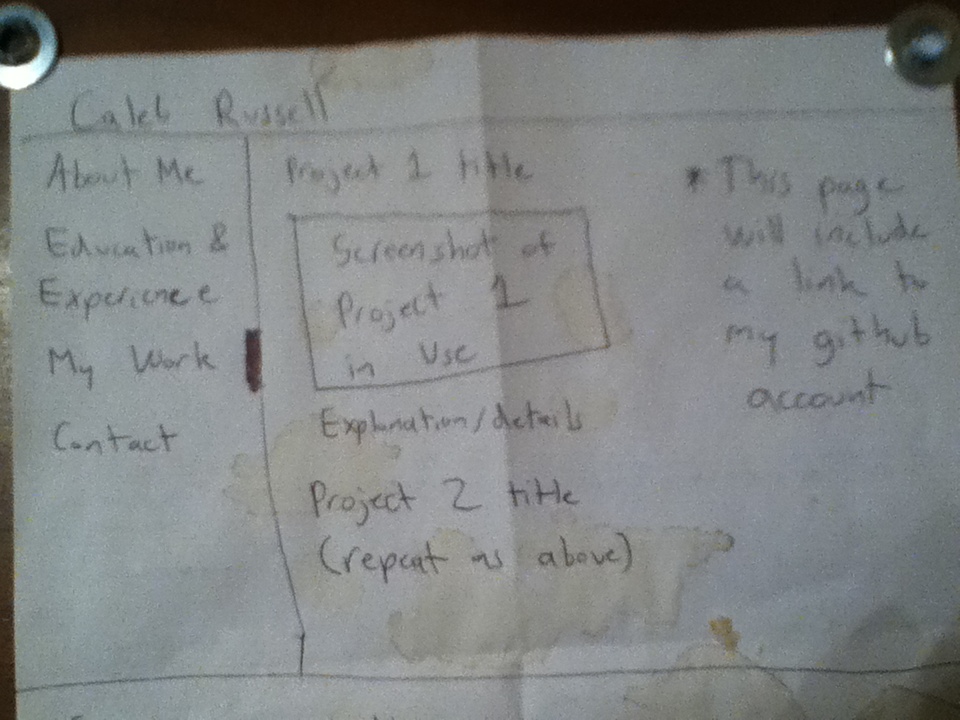 Caleb Russell
About Me
Education &
Experience
My Work
Contact
Project 1 title
Screenshot of
Project 1
in Use
Explanation/details
Project 2 title
(repeat as above)
* This page
will include
a link to
my github
account